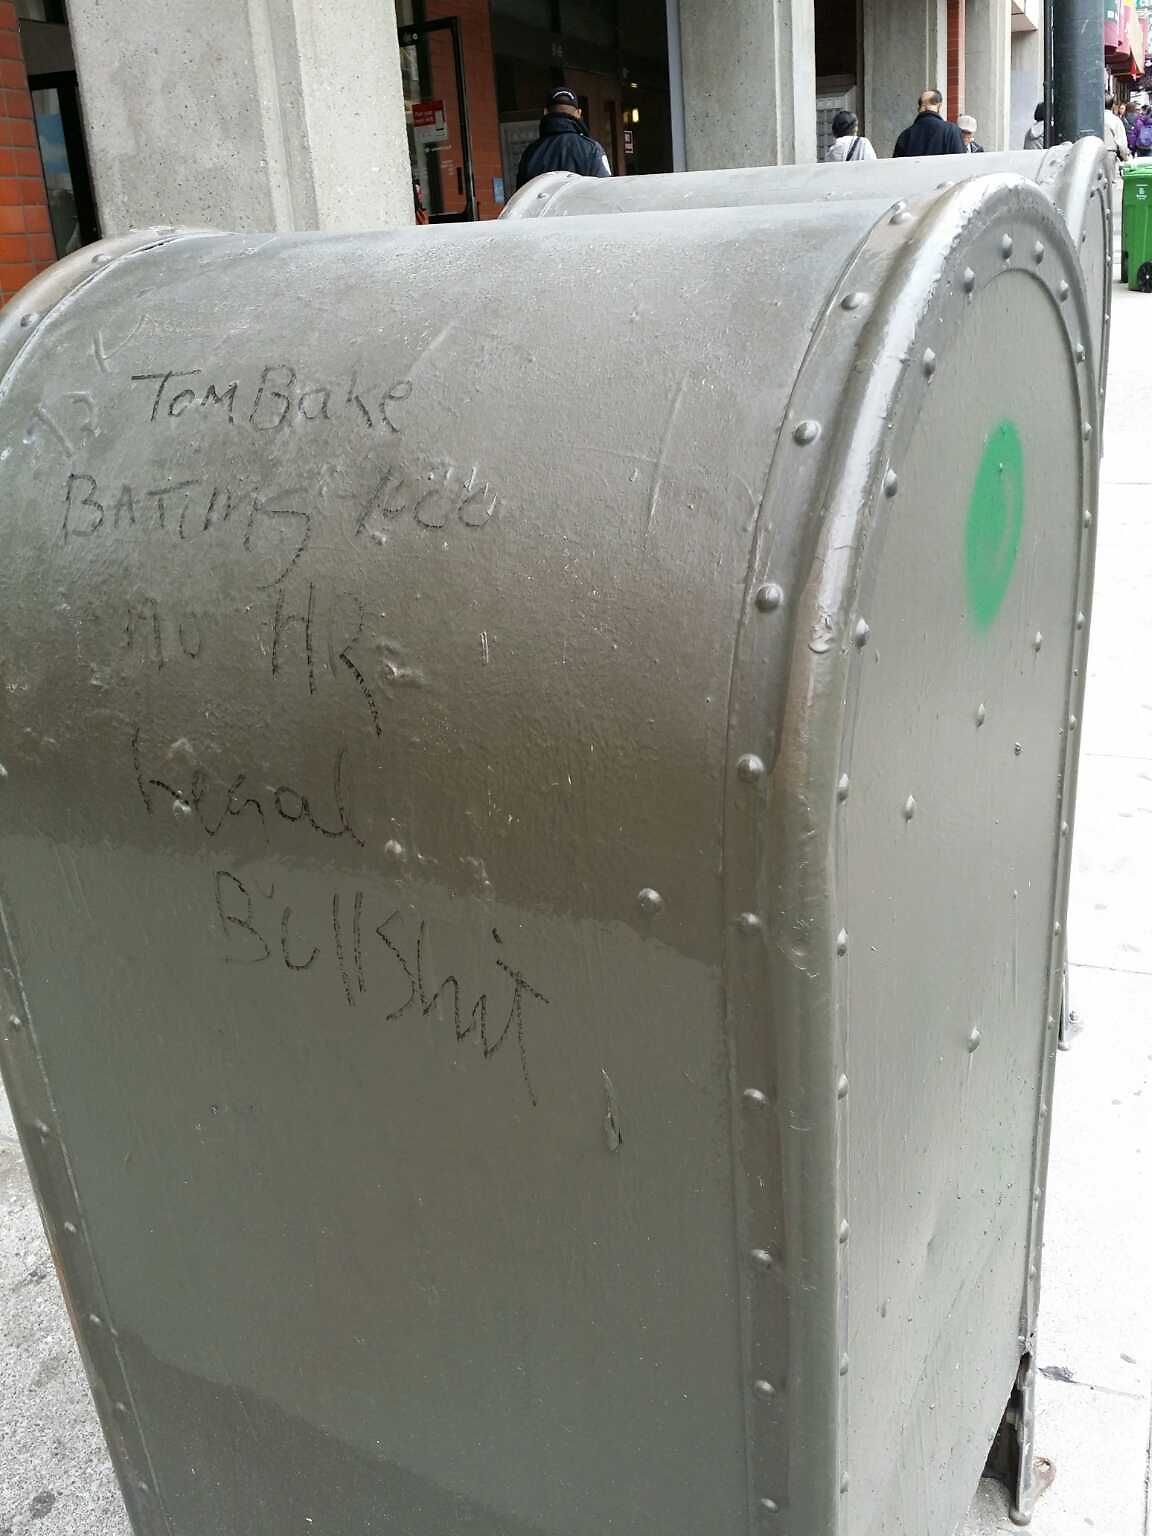 Tom Bake
BATING 1000
no HR
Legal
BullShit